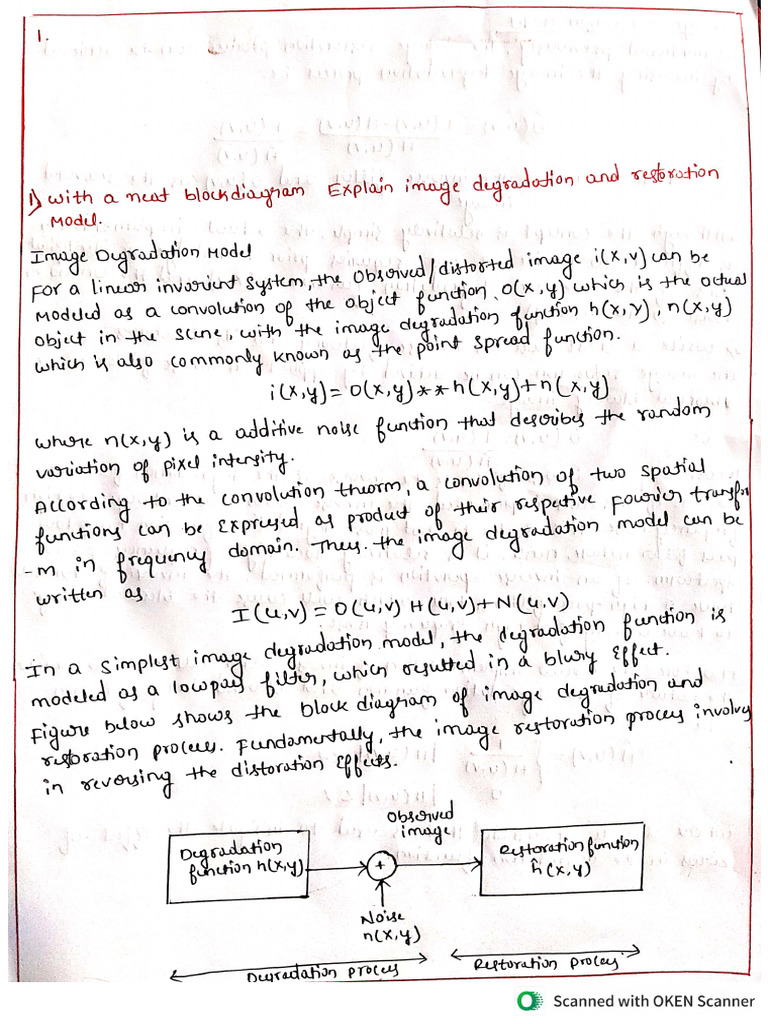 1.
1) with a neat blockdiagram Explain image degradation and restoration
Model.
Image Degradation Model
For a linear invarient system, the observed/distorted image i(x,v) can be
Modeled as a convolution of the object function, o(x,y) which is the actual
object in the scene, with the image degradation function h(x,y), n(x,y)
which is also commonly known as the point spread function.
i(x,y)= o(x,y)**h(x,y)+n(x,y)
where n(x,y) is a additive noise function that describes the random
variation of pixel intensity.
According to the convolution theorm, a convolution of two spatial
functions can be expressed as product of their respetive fourier transfor
-m in frequency domain. Thus. the image degradation model can be
written as
I(u,v)=O(u,v) H(u,v)+N(u,v)
In a simplest image degradation model, the degradation function is
modeled as a lowpass filter, which resulted in a blury effect.
Figure below shows the block diagram of image degradation and
restoration process. Fundamentally, the image restoration process involvy
in reversing the distoration effects.
Observed
image
Degradation
function h(x,y)
+
Restoration function
ĥ(x,y)
Noise
n(x,y)
Degradation process
Restoration process
Scanned with OKEN Scanner